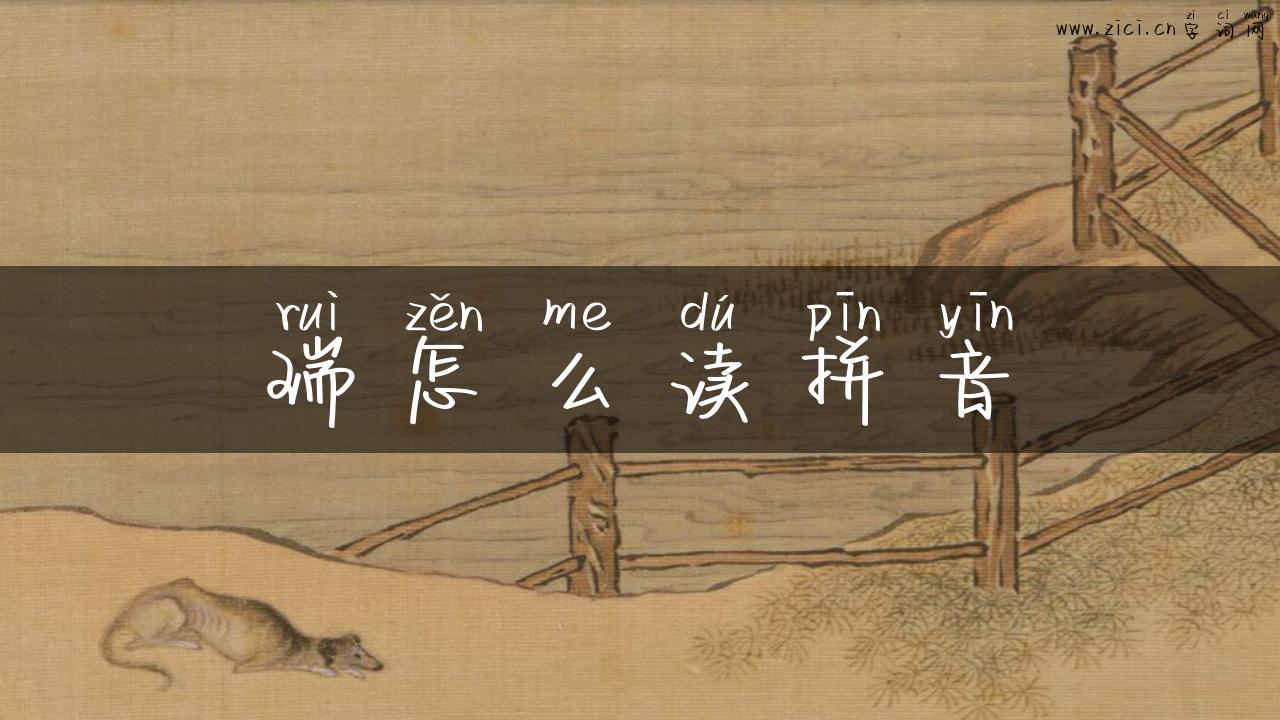 zi ci wang
www.zici.cn 字词网
ruì zěn me dú pīn yīn
瑞怎么读拼音